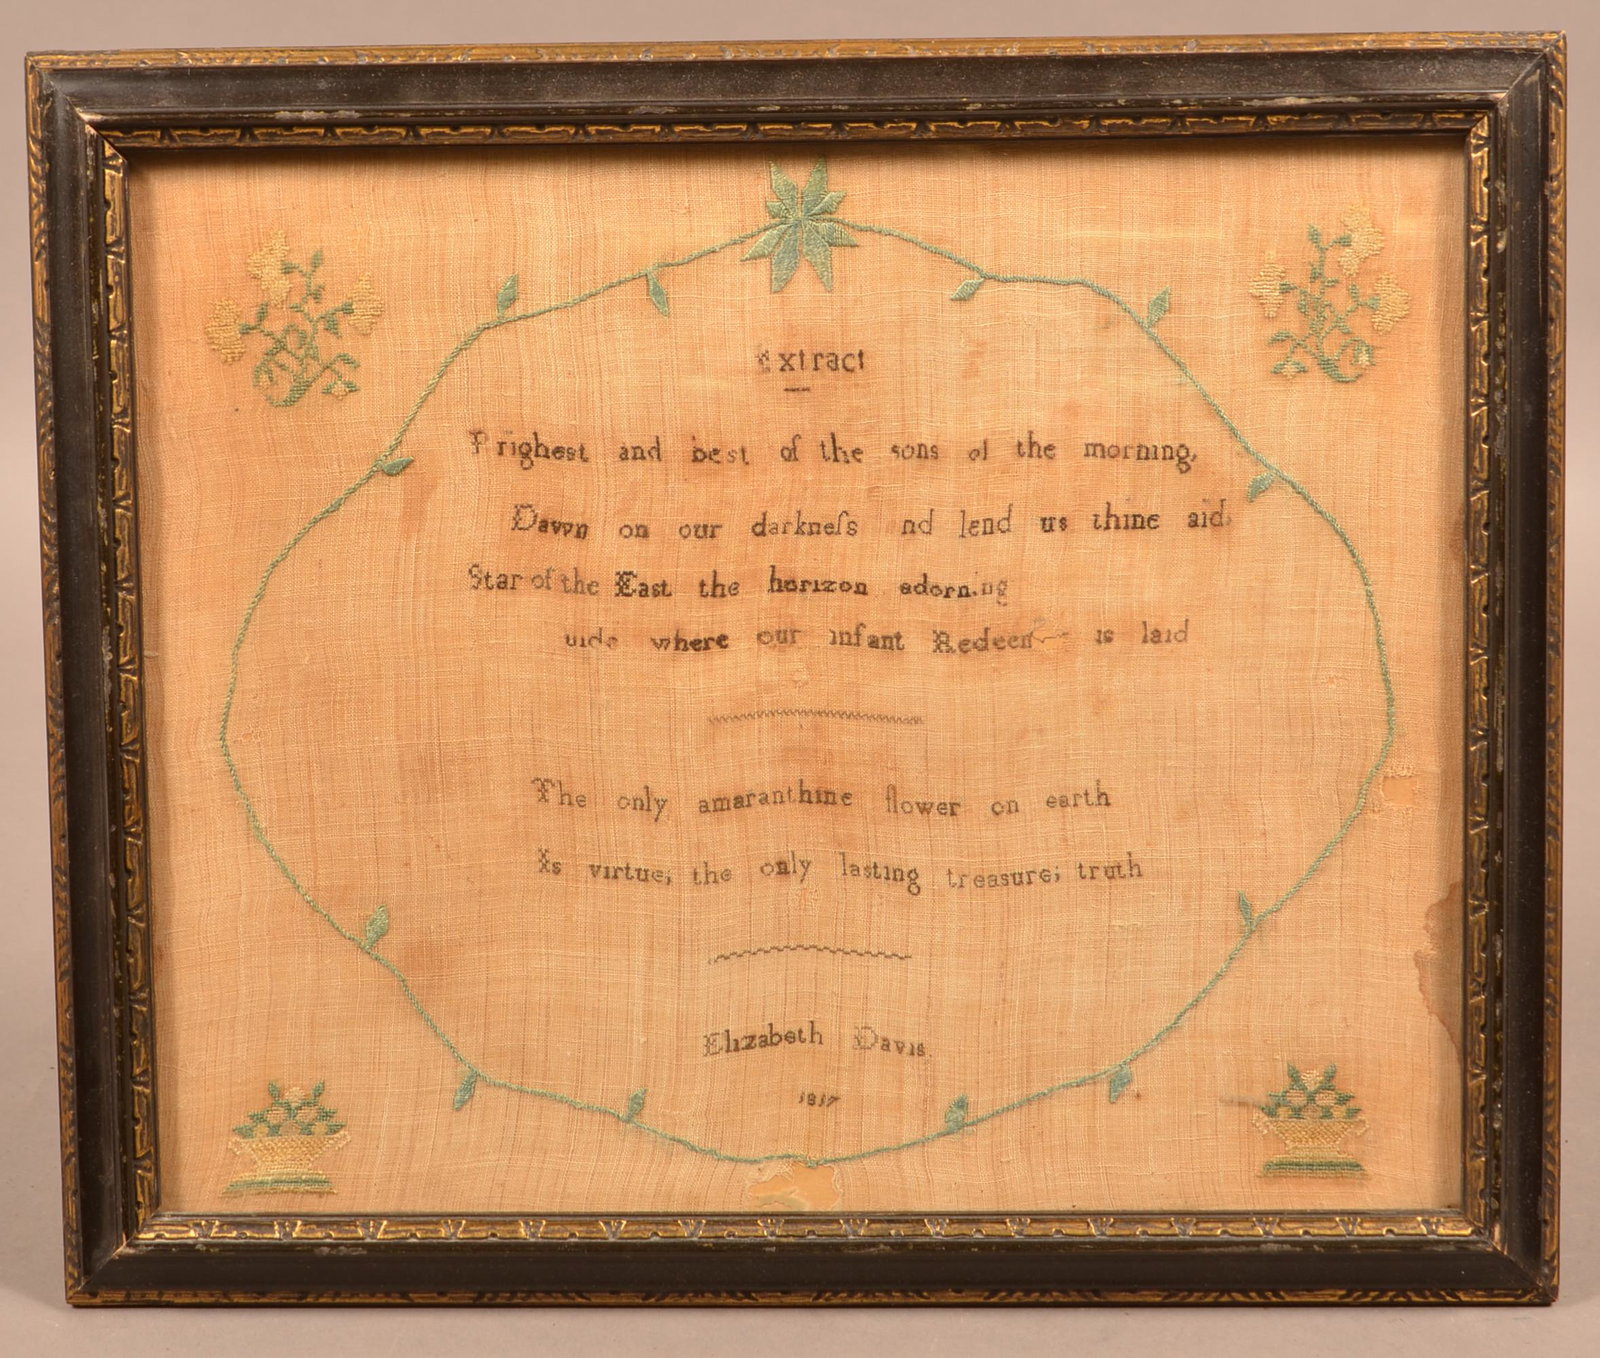 Extract
Brighest and best of the sons of the morning,
Dawn on our darkneſs nd lend us thine aid,
Star of the East the horizon adorning
uide where our infant Redeem is laid
The only amaranthine flower on earth
Is virtue; the only lasting treasure; truth
Elizabeth Davis
1817